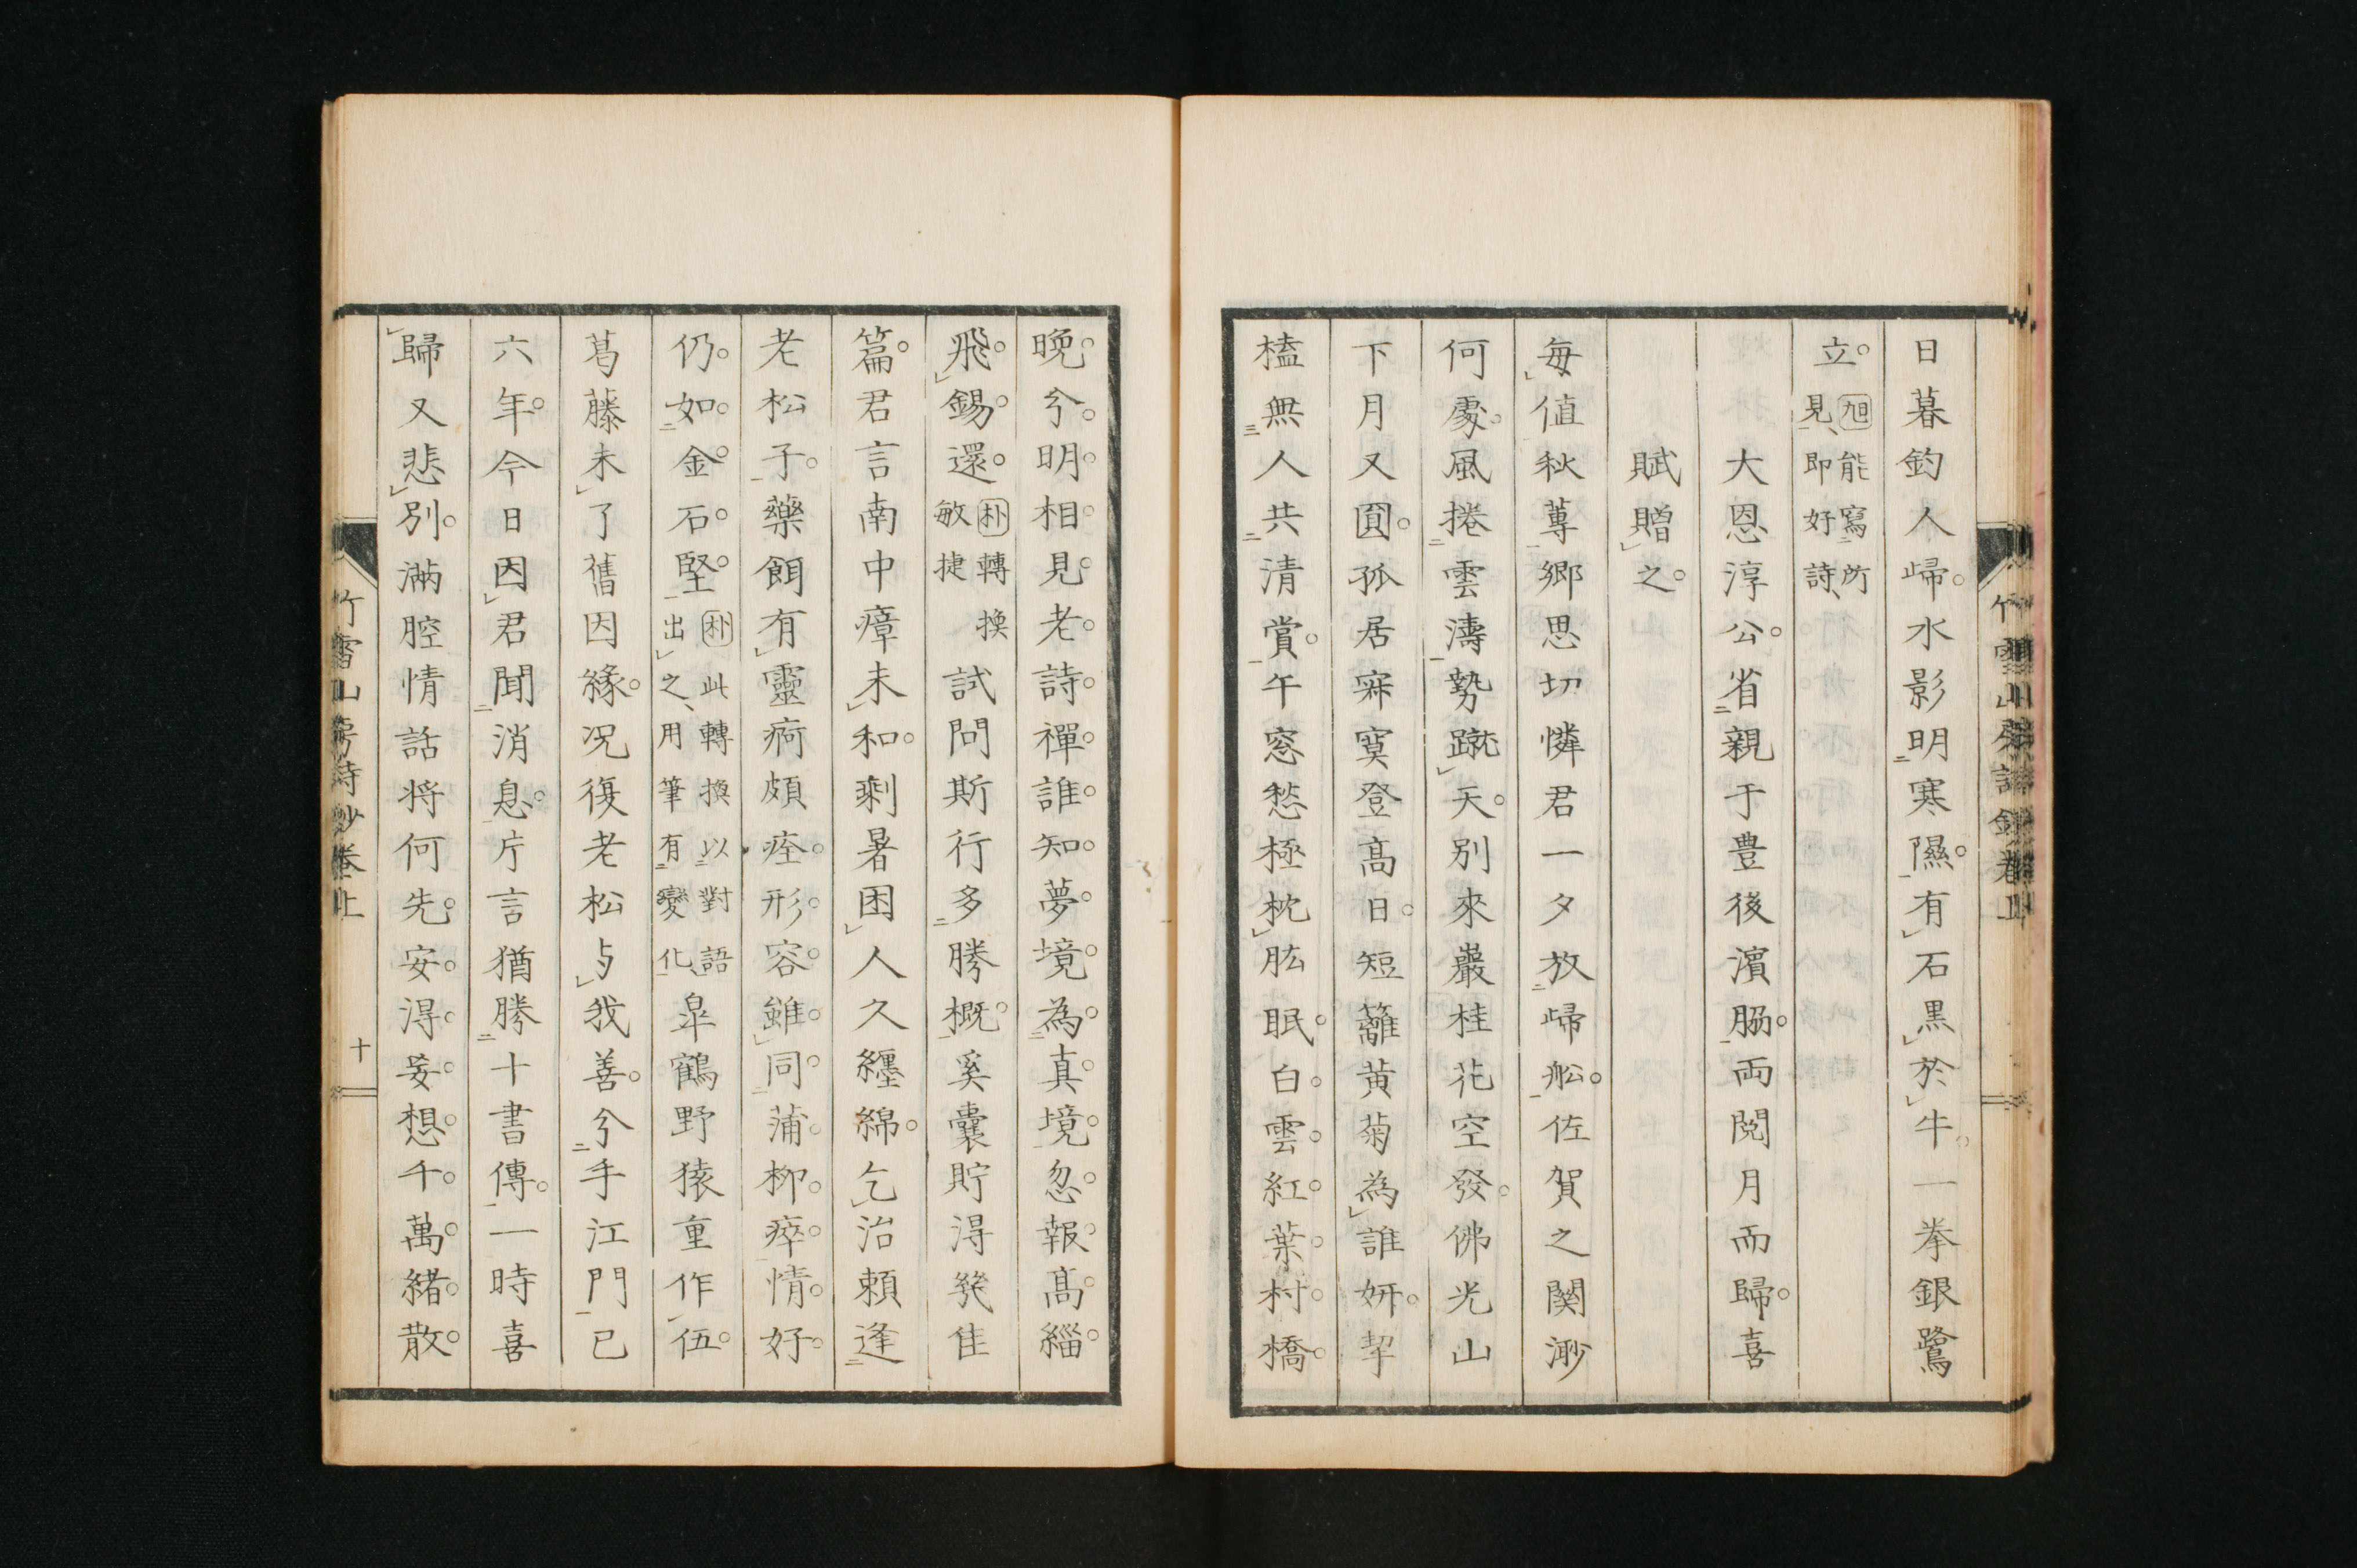 日暮釣人歸。水影明寒隰。有石黒於牛。一拳銀鷺
立。旭能寫所見、即好詩、
大恩淳公。省親于豊後濵脇。両閲月而歸。喜
賦贈之。
毎値秋蓴郷思切憐君一夕放歸船。佐賀之関渺
何處。風捲雲濤勢蹴天。別來巖桂花空發。佛光山
下月又圓。孤居寂寞登髙日。短籬黄菊為誰妍。挈
榼無人共清賞。午窓愁極枕肱眠。白雲。紅葉。村橋。
晩。兮。明。相。見。老。詩。禪。誰。知。夢。境。為。真。境。忽。報。髙。緇。
飛。錫。還。朴轉換敏捷試問斯行多勝概。奚囊貯得幾佳
篇。君言南中瘴未和。剩暑困人久纒綿。乞治頼逢
老松子。藥餌有靈痾頗痊。形。容。雖。同。蒲。柳。瘁。情。好。
仍。如。金。石。堅。朴此轉換以對語出之、用筆有變化、皐鶴野猿重作伍。
葛藤未了舊因緣。况復老松与我善。分手江門已
六年。今日因君聞消息。片言猶勝十書傳。一時喜
歸又悲別。滿腔情話将何先。安。得。妄。想。千。萬。緒。散。
竹雪山房詩鈔巻上
十